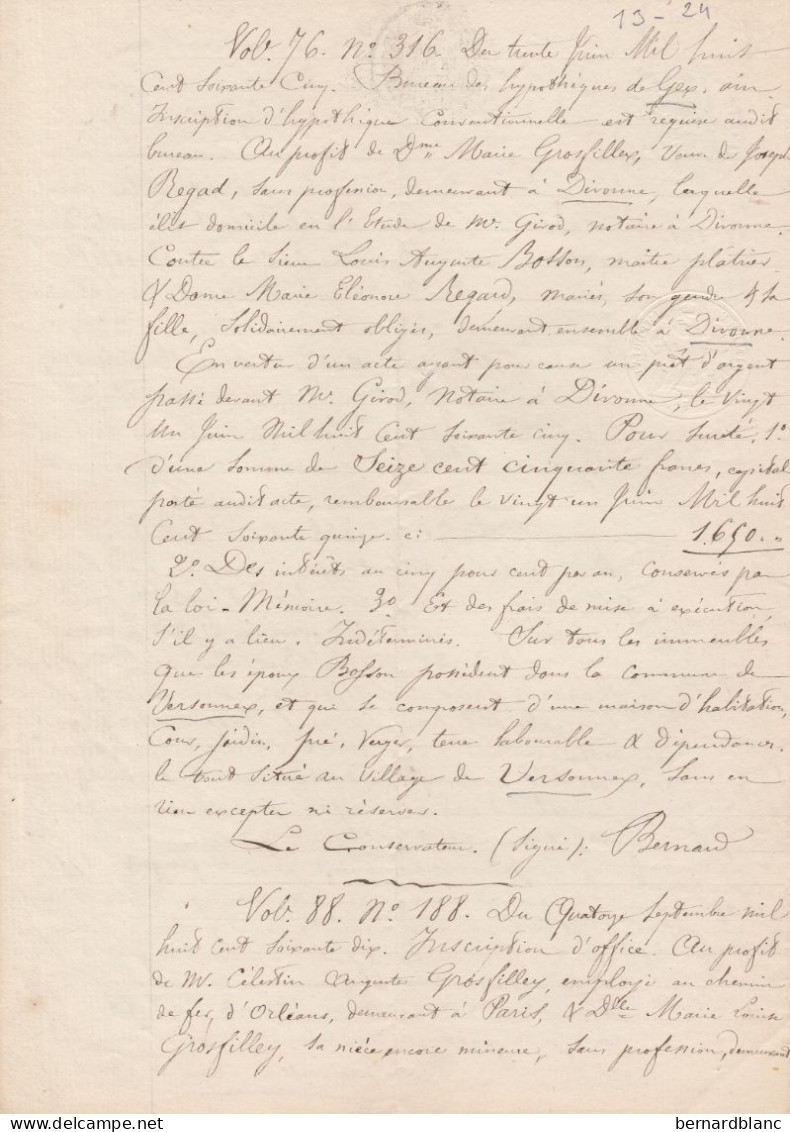 13 - 24
Vol. 76. N° 316. Du trente Juin Mil huit
Cent Soixante Cinq. Bureau des hypothèques de Gex. ain
Inscription d'hypothèque Conventionnelle - est requise audit
bureau. Au profit de Dme Marie Grosfilley, Veuve de Joseph
Regad, sans profession, demeurant à Divonne, laquelle
élit domicile en l'Etude de Mr Girod, notaire à Divonne.
Contre le Sieur Louis Auguste Bosson, maître plâtrier
& Dame Marie Eléonore Regard, mariés, son gendre & sa
fille, Solidairement obligés, demeurant ensemble à Divonne.
En vertu d'un acte ayant pour cause un prêt d'argent
passé devant Mr. Girod, Notaire à Divonne, le Vingt
un Juin Mil huit Cent Soixante cinq. Pour sureté, 1°
d'une somme de Seize cent cinquante francs, capital
porté audit acte, remboursable le vingt un Juin Mil huit
Cent Soixante quinze. ci: 1.650. "
2° Des intérêts au cinq pour cent par an, conservés par
la loi - Mémoire. 3° Et des frais de mise à exécution
s'il y a lieu. Indéterminés. Sur tous les immeubles
que les époux Bosson possèdent dans la commune de
Versonnex, et que se composent d'une maison d'habitation,
Cour, jardin, pré, Verger, terre labourable & dépendances.
le tout situé au Village de Versonnex, Sans en
rien excepter ni réserver.
Le Conservateur. (Signé): Bernard
Vol. 88. N° 188. Du Quatorze Septembre mil
huit cent soixante dix. Inscription d'office. Au profit
de Mr. Célestin Auguste Grosfilley, employé au chemin
de fer, d'Orléans, demeurant à Paris, & Dlle Marie Louise
Grosfilley, sa nièce encore mineure, sans profession, demeurant
bernardblanc
www.delcampe.net